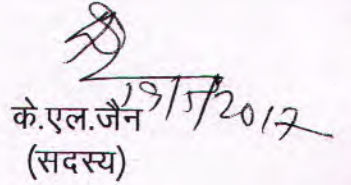 19/5/2017
के.एल.जैन
(सदस्य)